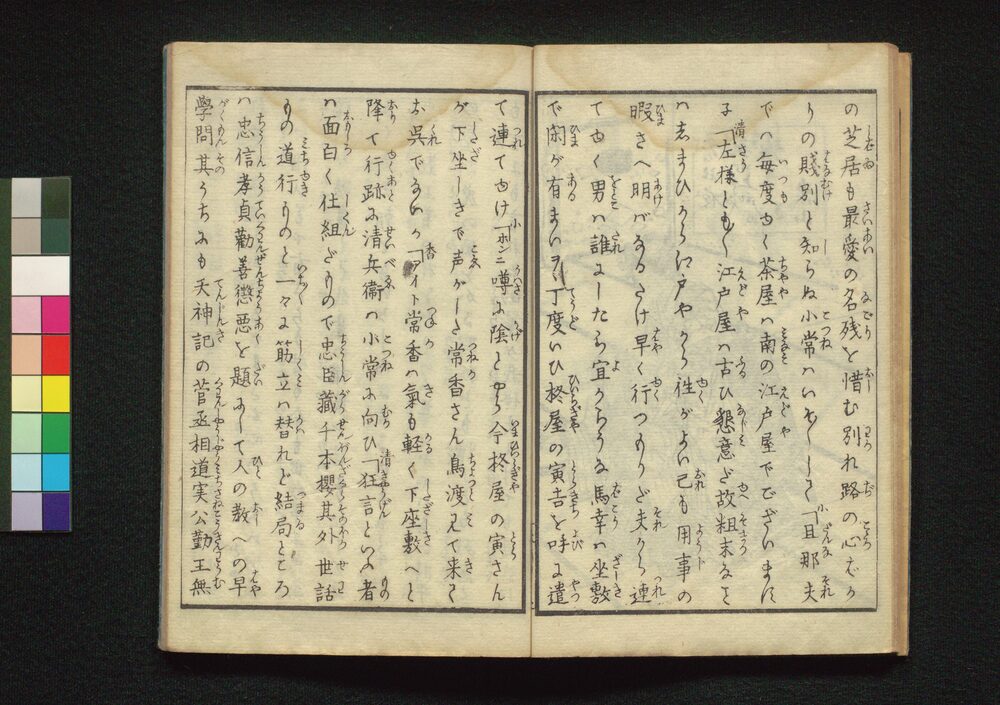 の芝居も最愛の名残と惜む別れ路の心ばか
りの賤別と知らぬ小常ハいそ〳〵して「旦那夫
でハ毎度ゆく茶屋ハ南の江戸屋でございまに
子「左様とも〳〵江戸屋ハ古ひ懇意だ故粗末なこと
ハあまひから江戸やから往がよい己も用事の
暇さへ明がなるたけ早く行つもりだ夫から連
てゆく男ハ誰にしたら宜からうな馬幸ハ坐敷
で閑が有まいヲヽ丁度いひ柊屋の寅吉を呼に遣
て連てゆけ「ホンニ噂に陰とやら今柊屋の寅さん
が下坐しきで声がした常香さん鳥渡見て来て
お呉でないか「アイト常香ハ氣も軽く下座敷へと
降て行跡に清兵衞ハ小常に向ひ「狂言といふ者
ハ面白く仕組だもので忠臣藏千本櫻其外世話
もの道行ものと一々に筋立ハ替れど結局ところ
ハ忠信孝貞勸善懲悪を題にして人の教への早
學問其うちにも天神記の菅丞相道実公勤王無